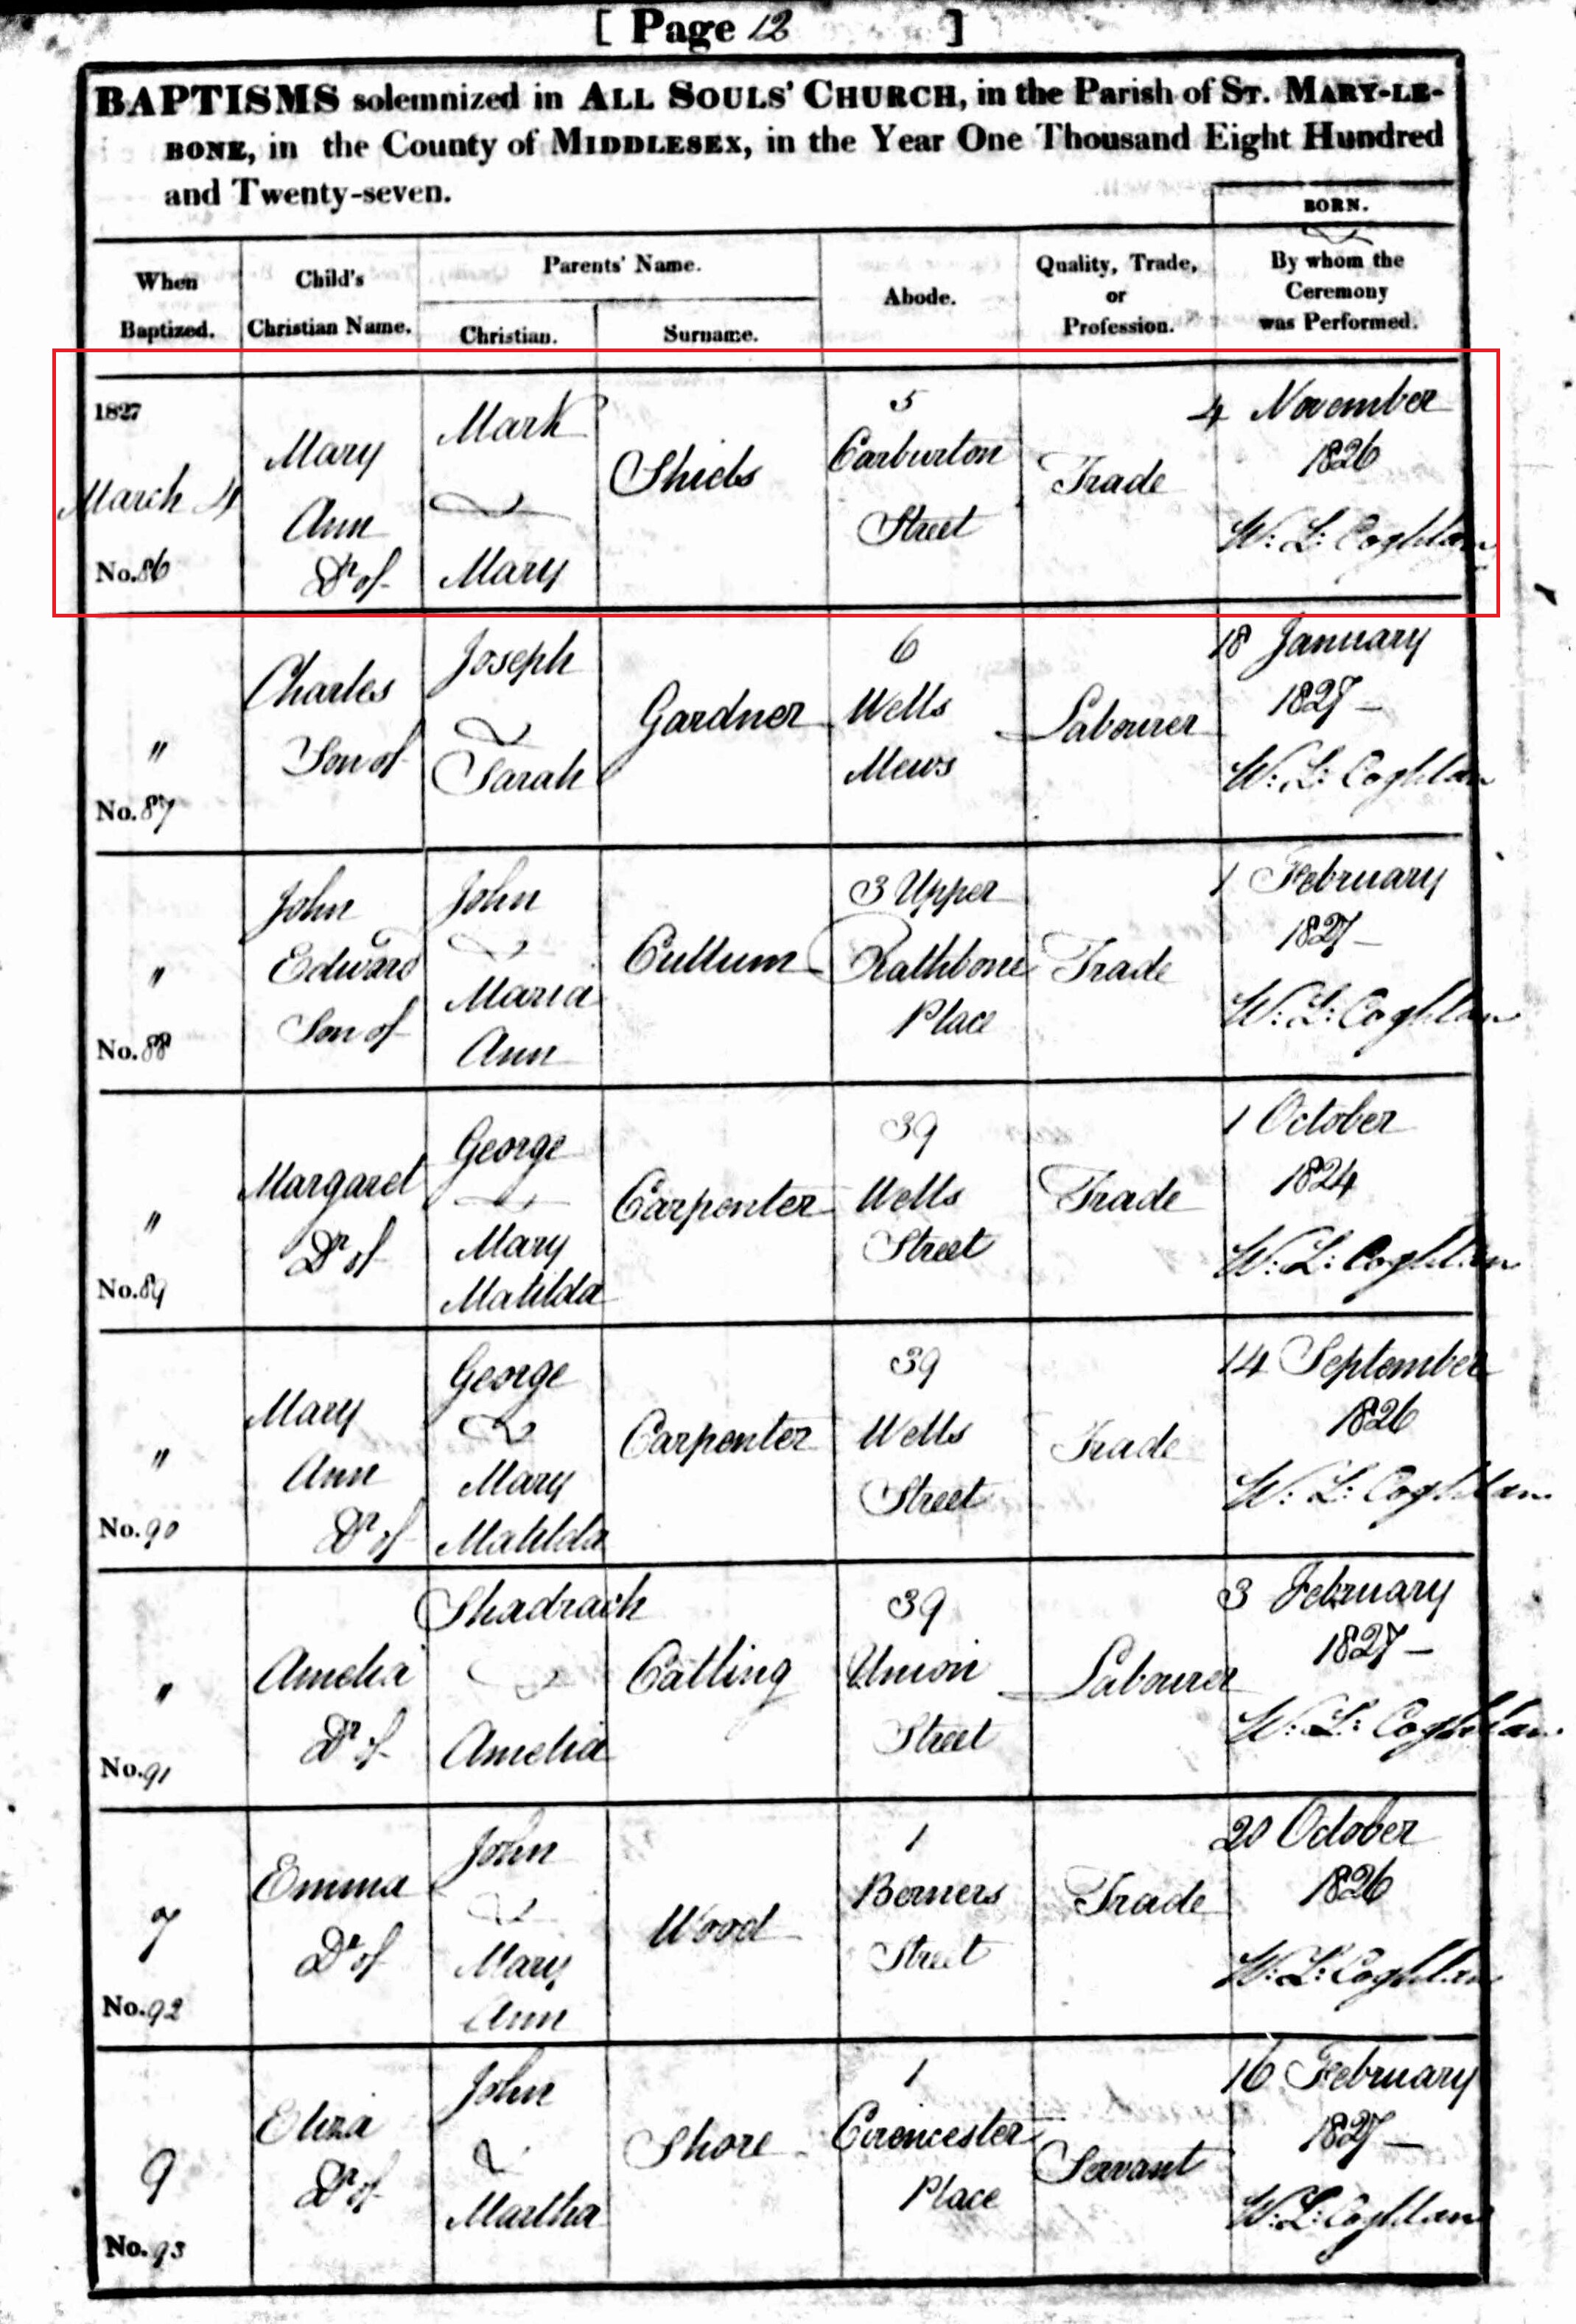 [ Page 12 ]
BAPTISMS solemnized in ALL SOULS' CHURCH, in the Parish of ST. MARY-LE-
BONE, in the County of MIDDLESEX, in the Year One Thousand Eight Hundred
and Twenty-seven.
BORN.
When
Baptized.
Child's
Christian Name.
Parents' Name.
Christian.
Surname.
Abode.
Quality, Trade,
or
Profession.
By whom the
Ceremony
was Performed.
1827
March 4
No. 86
Mary
Ann
Dr of
Mark
&
Mary
Shiels
5
Carburton
Street
Trade
4 November
1826
W: L: Coghlan
"
No. 87
Charles
Son of
Joseph
&
Sarah
Gardner
6
Wells
Mews
Labourer
18 January
1827
W: L: Coghlan
"
No. 88
John
Edward
Son of
John
&
Maria
Ann
Cullum
3 Upper
Rathbone
Place
Trade
1 February
1827
W: L: Coghlan
"
No. 89
Margaret
Dr of
George
&
Mary
Matilda
Carpenter
39
Wells
Street
Trade
1 October
1824
W: L: Coghlan
"
No. 90
Mary
Ann
Dr of
George
&
Mary
Matilda
Carpenter
39
Wells
Street
Trade
14 September
1826
W: L: Coghlan
"
No. 91
Amelia
Dr of
Shadrach
&
Amelia
Catling
39
Union
Street
Labourer
3 February
1827
W: L: Coghlan
7
No. 92
Emma
Dr of
John
&
Mary
Ann
Wood
1
Berners
Street
Trade
20 October
1826
W: L: Coghlan
9
No. 93
Eliza
Dr of
John
&
Martha
Shore
1
Cirencester
Place
Servant
16 February
1827
W: L: Coghlan